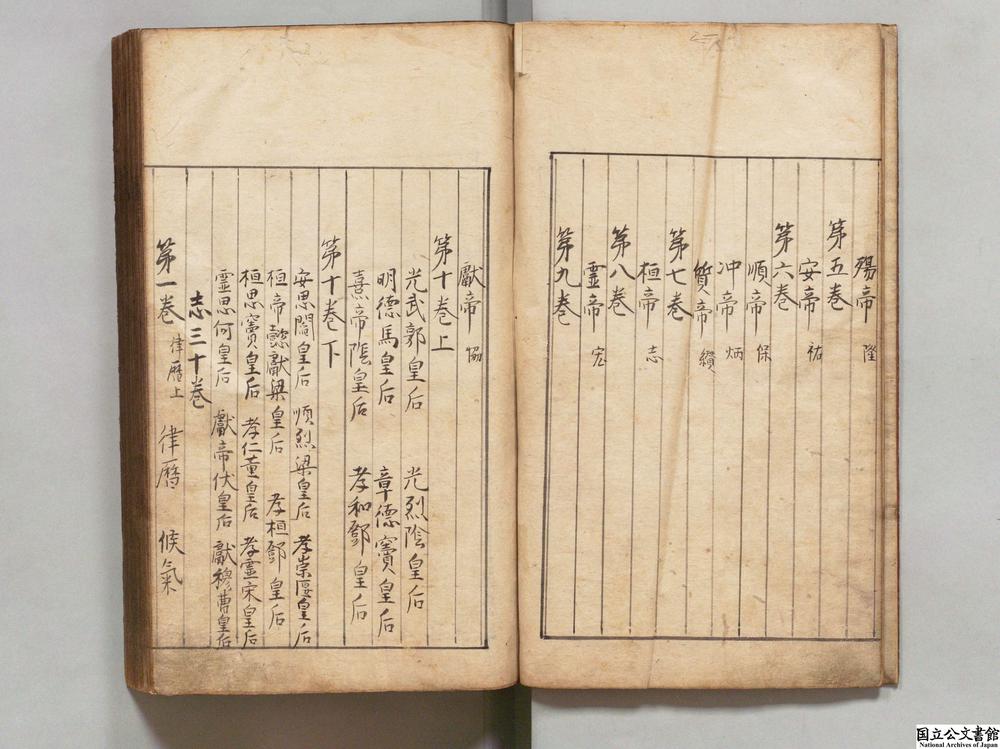 殤帝 隆
第五卷
安帝 祐
第六卷
順帝 保
冲帝 炳
質帝 纘
第七卷
桓帝 志
第八卷
霊帝 宏
第九卷
獻帝 協
第十卷上
光武郭皇后 光烈陰皇后
明德馬皇后 章德竇皇后
熹帝陰皇后 孝和鄧皇后
第十卷下
安思閻皇后 順烈梁皇后 孝崇匽皇后
桓帝懿獻梁皇后 孝桓鄧皇后
桓思竇皇后 孝仁董皇后 孝霊宋皇后
靈思何皇后 獻帝伏皇后 獻穆曹皇后
志三十卷
第一卷 律曆上 律曆 候氣
国立公文書館
National Archives of Japan